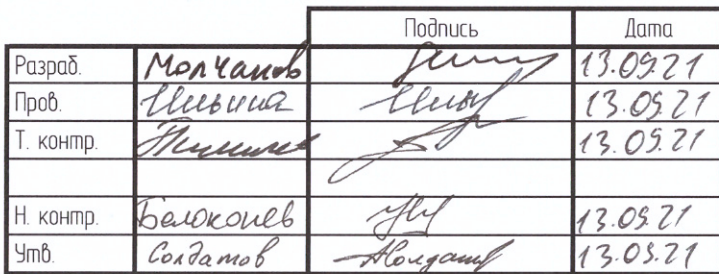 Подпись Дата
Разраб. Молчанов 13.09.21
Пров. Ильина 13.09.21
Т. контр. 13.09.21
Н. контр. Белоконев 13.09.21
Утв. Солдатов 13.09.21